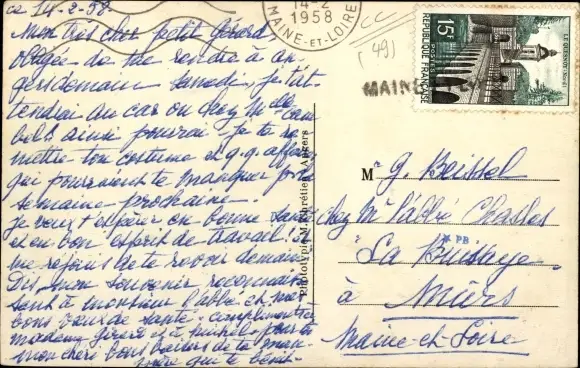 ce 14-2-58
Mon très cher petit Gérard
obligée de me rendre à An
gers demain samedi, je t'at-
tendrai au car ou chez Mme
bols ainsi pourrai-je te re
mettre ton costume et q.q. affaires
qui pourraient te manquer pr la
semaine prochaine.
Je veux espérer en bonne santé
et en bon esprit de travail! Je
me réjouis de te revoir demain
Dis mon souvenir reconnais
sant à monsieur l'abbé et mes
bons vœux de santé - compliments à
madame et à Michel pour toi
mon chéri bons baisers de ta mam-
qui te bénit-
14-2
1958
MAINE-ET-LOIRE
CC
(49)
MAINE
15F
POSTES
RÉPUBLIQUE FRANÇAISE
LE QUESNOY (NORD)
Phototypie M. Chrétien - Angers
M r G. Beissel
chez Mr l'abbé Charles
PB
La Buissaye
à Mûrs
Maine-et-Loire